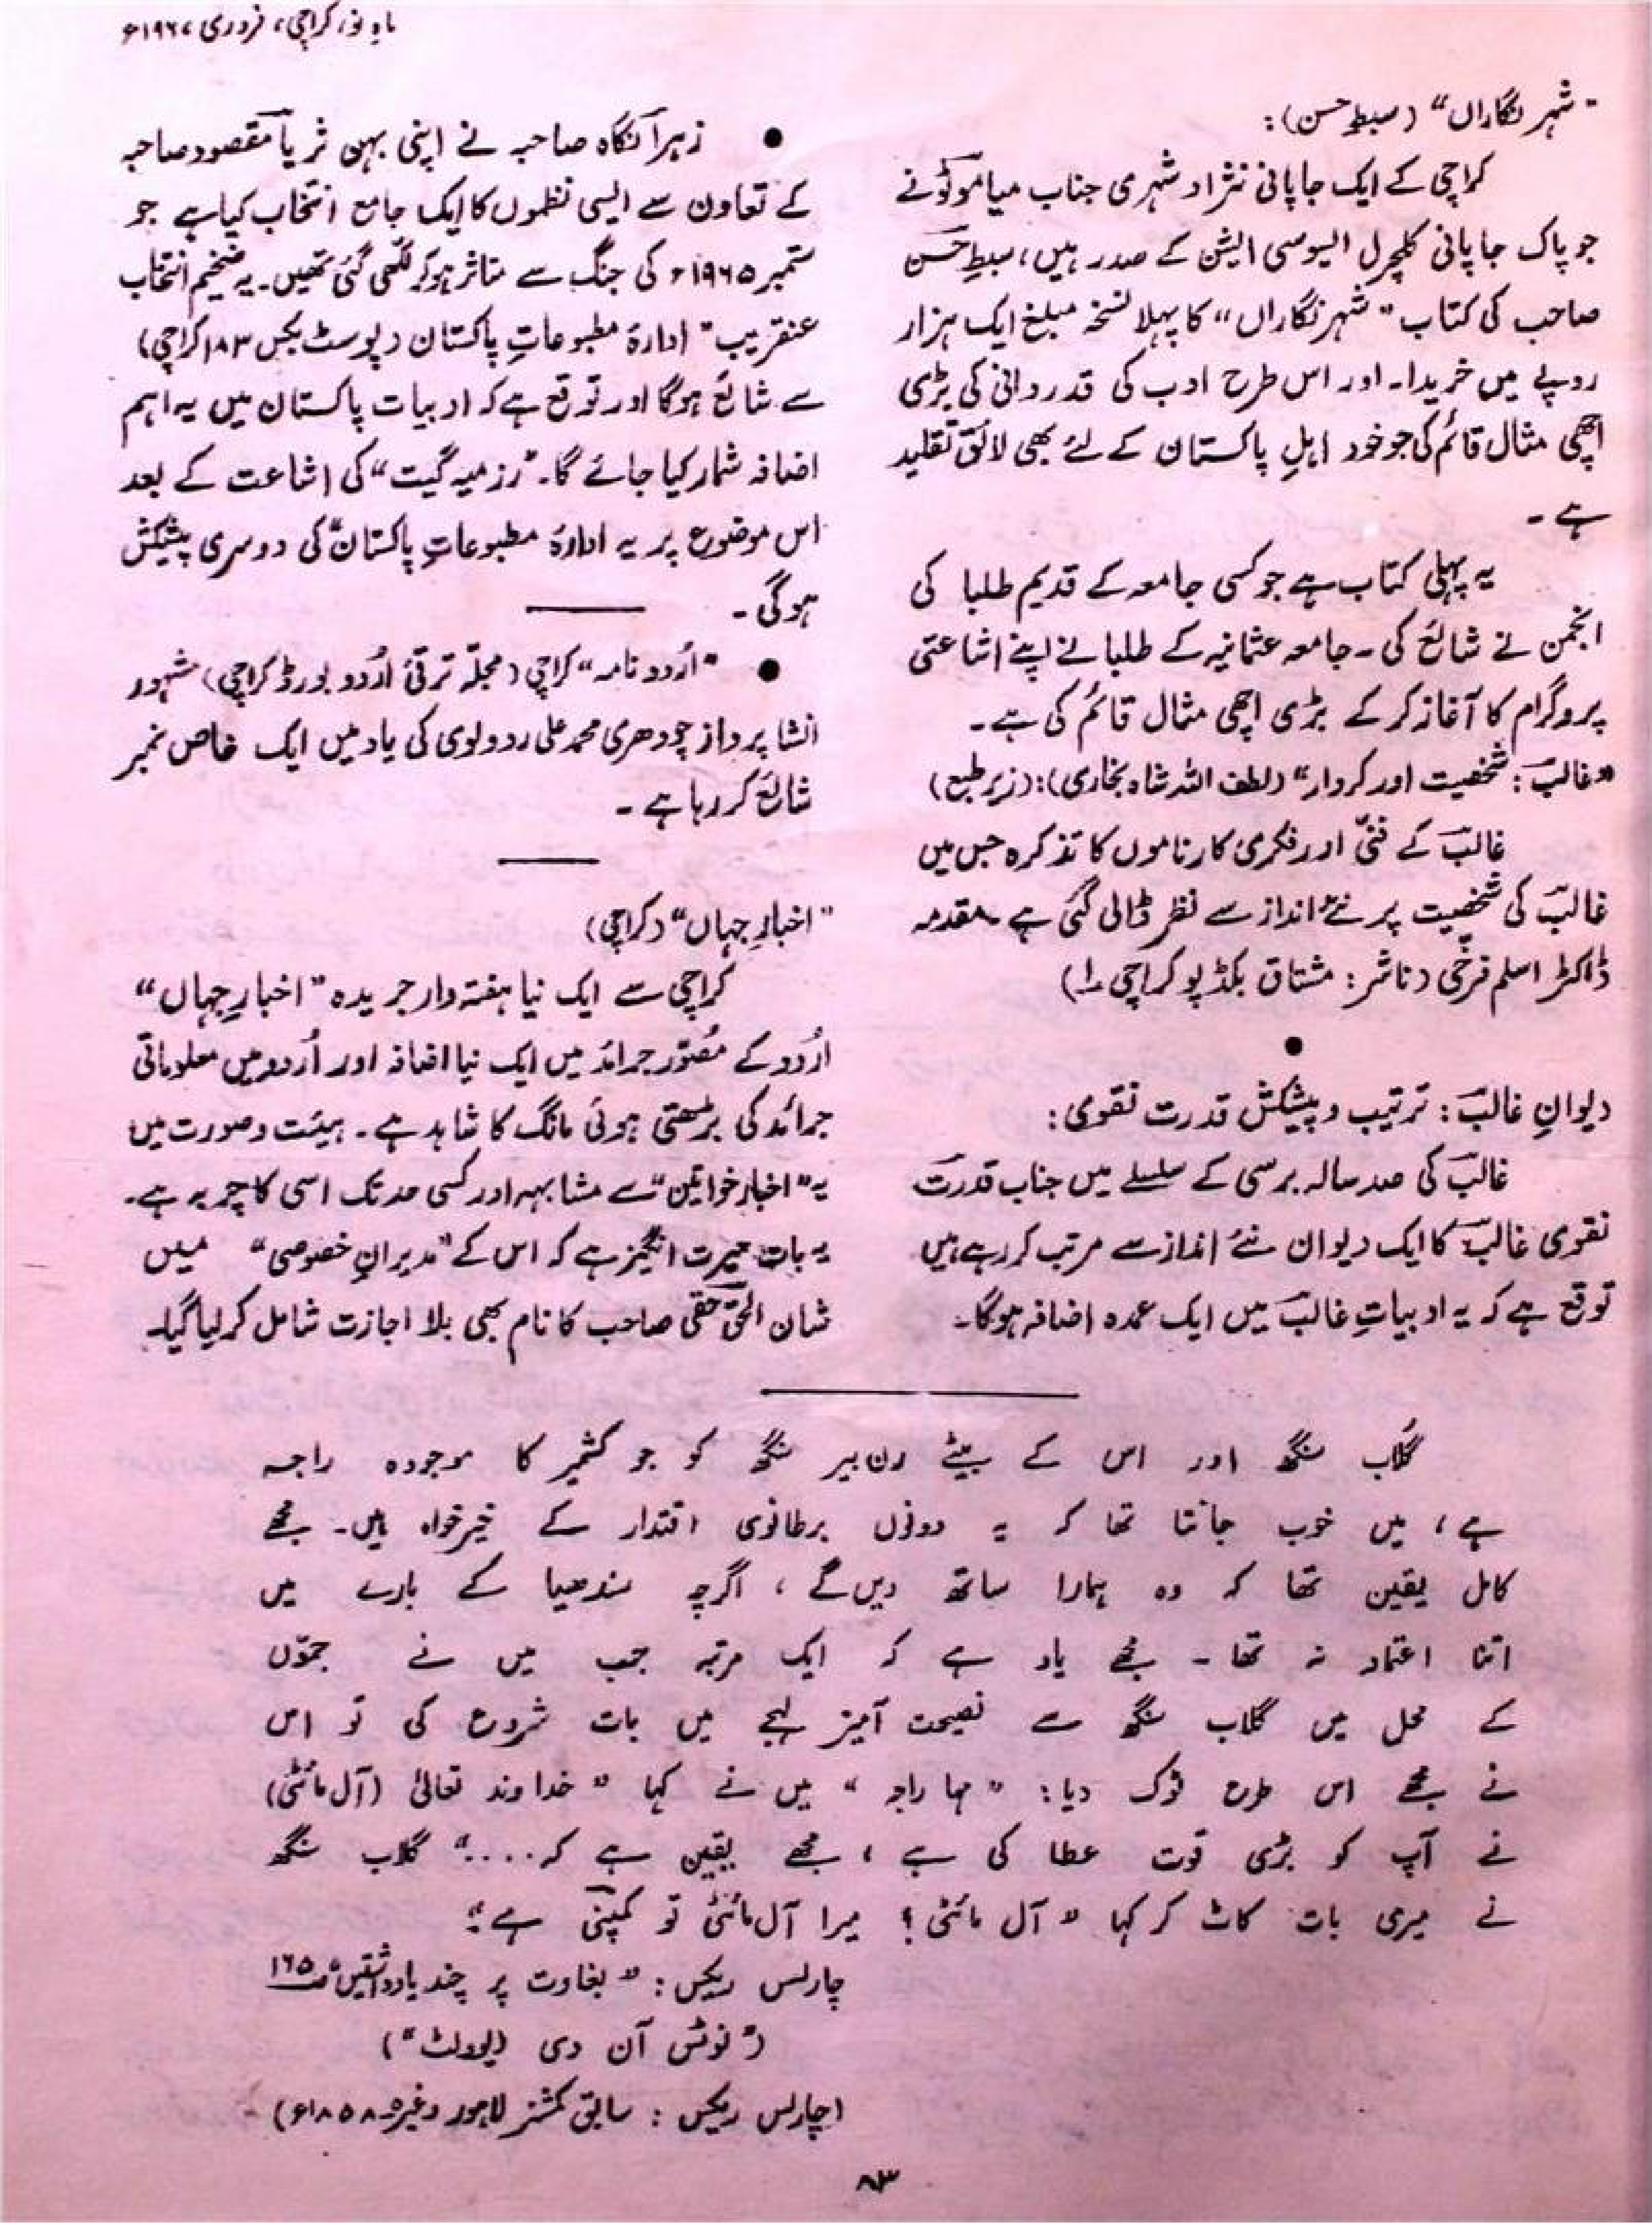 ماہِ نو، کراچی، فروری ۱۹۶۷ء
"شہر نگاراں" (سبطِ حسن):
کراچی کے ایک جاپانی نژاد شہری جناب میاموٹو نے
جو پاک جاپانی کلچرل ایسوسی ایشن کے صدر ہیں، سبطِ حسن
صاحب کی کتاب "شہر نگاراں" کا پہلا نسخہ مبلغ ایک ہزار
روپے میں خریدا۔ اور اس طرح ادب کی قدردانی کی بڑی
اچھی مثال قائم کی جو خود اہلِ پاکستان کے لئے بھی لائق تقلید
ہے۔
یہ پہلی کتاب ہے جو کسی جامعہ کے قدیم طلبا کی
انجمن نے شائع کی۔ جامعہ عثمانیہ کے طلبا نے اپنے اشاعتی
پروگرام کا آغاز کر کے بڑی اچھی مثال قائم کی ہے۔
"غالبؔ: شخصیت اور کردار" (لطف اللہ شاہ بخاری): (زیر طبع)
غالبؔ کے فنّی اور فکری کارناموں کا تذکرہ جس میں
غالبؔ کی شخصیت پر نئے انداز سے نظر ڈالی گئی ہے۔ مقدمہ
ڈاکٹر اسلم فرخی (ناشر: مشتاق بکڈپو کراچی ۱)
●
دیوانِ غالبؔ: ترتیب و پیشکش قدرت نقوی:
غالبؔ کی صد سالہ برسی کے سلسلے میں جناب قدرتؔ
نقوی غالبؔ کا ایک دیوان نئے انداز سے مرتب کر رہے ہیں
توقع ہے کہ یہ ادبیاتِ غالبؔ میں ایک عمدہ اضافہ ہوگا۔
● زہرا نگاہ صاحبہ نے اپنی بہن ثریا مقصود صاحبہ
کے تعاون سے ایسی نظموں کا ایک جامع انتخاب کیا ہے جو
ستمبر ۱۹۶۵ء کی جنگ سے متاثر ہو کر لکھی گئی تھیں۔ یہ ضخیم انتخاب
عنقریب "ادارۂ مطبوعاتِ پاکستان (پوسٹ بکس ۱۸۳ کراچی)
سے شائع ہوگا اور توقع ہے کہ ادبیات پاکستان میں یہ اہم
اضافہ شمار کیا جائے گا۔ "رزمیہ گیت" کی اشاعت کے بعد
اس موضوع پر یہ ادارۂ مطبوعاتِ پاکستان" کی دوسری پیشکش
ہوگی۔
● "اُردو نامہ" کراچی (مجلّہ ترقیٔ اُردو بورڈ کراچی) مشہور
انشا پرداز چودھری محمد علی ردولوی کی یاد میں ایک خاص نمبر
شائع کر رہا ہے۔
"اخبارِ جہاں" (کراچی)
کراچی سے ایک نیا ہفتہ وار جریدہ "اخبارِ جہاں"
اُردو کے مصوّر جرائد میں ایک نیا اضافہ اور اُردو میں معلوماتی
جرائد کی بڑھتی ہوئی مانگ کا شاہد ہے۔ ہیئت و صورت میں
یہ "اخبارِ خواتین" سے مشابہہ اور کسی حد تک اسی کا چربہ ہے۔
یہ بات حیرت انگیز ہے کہ اس کے "مدیرانِ خصوصی" میں
شان الحق حقی صاحب کا نام بھی بلا اجازت شامل کر لیا گیا۔
گلاب سنگھ اور اس کے بیٹے رن بیر سنگھ کو جو کشمیر کا موجودہ راجہ
ہے، میں خوب جانتا تھا کہ یہ دونوں برطانوی اقتدار کے خیر خواہ ہیں۔ مجھے
کامل یقین تھا کہ وہ ہمارا ساتھ دیں گے، اگرچہ سندھیا کے بارے میں
اتنا اعتماد نہ تھا۔ مجھے یاد ہے کہ ایک مرتبہ جب میں نے جموّں
کے محل میں گلاب سنگھ سے نصیحت آمیز لہجے میں بات شروع کی تو اس
نے مجھے اس طرح ٹوک دیا: "مہا راجہ" میں نے کہا "خداوند تعالیٰ (آل مائٹی)
نے آپ کو بڑی قوت عطا کی ہے، مجھے یقین ہے کہ...." گلاب سنگھ
نے میری بات کاٹ کر کہا "آل مائٹی؟ میرا آل مائٹی تو کمپنی ہے"۔
چارلس ریکس: "بغاوت پر چند یادداشتیں" صـ ۱۶۵
("نوٹس آن دی ریوولٹ")
(چارلس ریکس: سابق کمشنر لاہور وغیرہ ۱۸۵۸ء)
۸۳